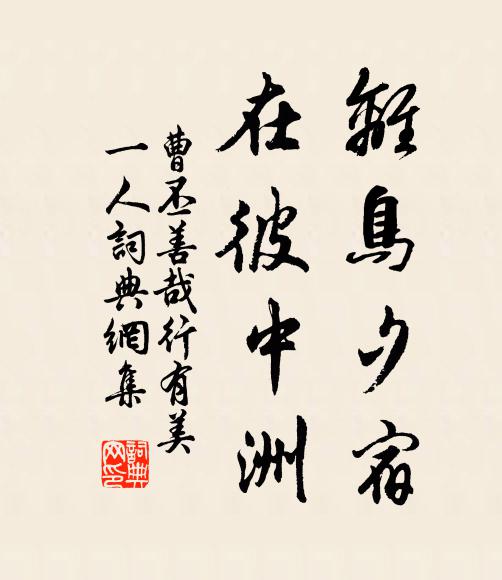 離鳥夕宿
在彼中洲
曹丕善哉行有美
一人詞典網集
詞典
网印